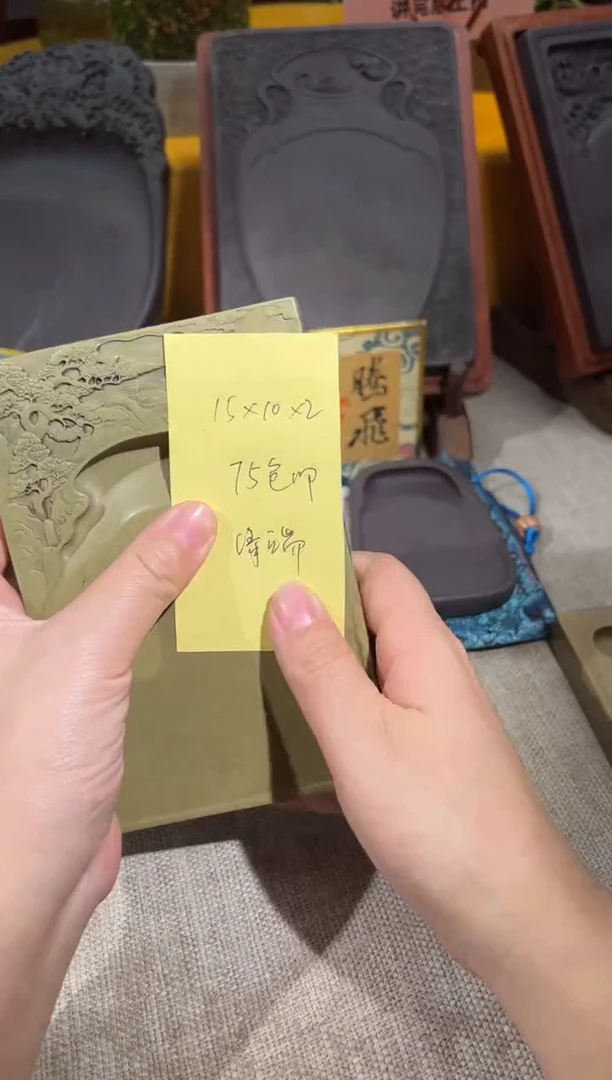 15×10×2
75包邮
绿端
腾飞